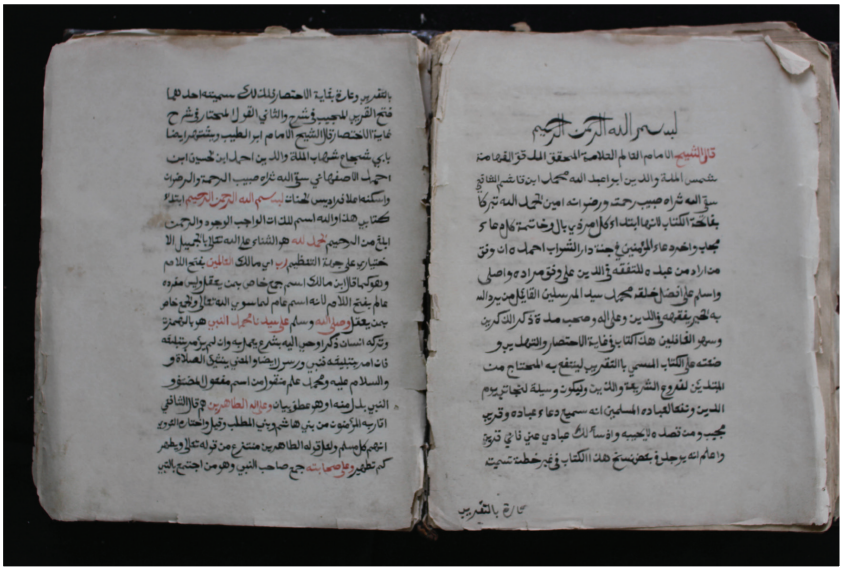 بسم الله الرحمن الرحيم
قال الشيخ الامام العالم العلامة المحقق المدقق الفهامة
شمس الملة والدين ابو عبد الله محمد ابن قاسم الشافعي
سقى الله ثراه صبيب رحمته ورضوانه امين الحمد لله تبركا
بفاتحة الكتاب لانها ابتداء كل امر ذي بال وخاتمة كل دعاء
مجاب واخر دعاء المؤمنين في جنة دار الثواب احمده ان وفق
من اراد من عباده للتفقه في الدين على وفق مراده واصلي
واسلم على افضل خلقه محمد سيد المرسلين القائل من يرد الله
به الخير يفقهه في الدين وعلى اله وصحبه مدة ذكر الذاكرين
وسهو الغافلين هذا كتاب في غاية الاختصار والتهذيب و
ضعته على الكتاب المسمى بالتقريب لينتفع به المحتاج من
المبتدئين لفروع الشريعة والدين وليكون وسيلة لنجاتي يوم
الدين ونفعا لعباده المسلمين انه سميع دعاء عباده وقريب
مجيب ومن قصده لا يخيبه واذا سألك عبادي عني فاني قريب
واعلم انه يوجد في بعض نسخ هذا الكتاب في غير خطبة تسميته
تارة بالتقريب
بالتقريب وتارة بغاية الاختصار فلذلك سميته احدهما
فتح القريب المجيب في شرح والثاني القول المختار في شرح
غاية الاختصار قال الشيخ الامام ابو الطيب ويشتهر ايضا
بابي شجاع شهاب الملة والدين احمد ابن حسين ابن
احمد الاصفهاني سقى الله ثراه صبيب الرحمة والرضوان
واسكنه اعلا فراديس الجنان بسم الله الرحمن الرحيم ابتداء
كتابي هذا والله اسم للذات الواجب الوجود والرحمن
ابلغ من الرحيم الحمد لله هو الثناء على الله تعالى بالجميل الا
ختياري على جهة التعظيم رب اي مالك العالمين بفتح اللام
وهو كما قال ابن مالك اسم جمع خاص بمن يعقل وليس مفرده
عالم بفتح اللام لانه اسم عام لما سوى الله تعالى والجمع خاص
بمن يعقل وصلى الله وسلم على سيدنا محمد النبي هو بالهمزة
وتركه انسان ذكر اوحي اليه بشرع يعمل به وان لم يؤمر بتبليغه
فان امر بتبليغه فنبي ورسول ايضا والمعنى ينشئ الصلاة و
والسلام عليه ومحمد علم منقول من اسم مفعول المضعف
النبي بدل منه او هو عطف بيان وعلى اله الطاهرين هم قال الشافعي
اقاربه المؤمنون من بني هاشم وبني المطلب وقيل واختاره النووي
انهم كل مسلم ولعل قوله الطاهرين منتزع من قوله تعالى ويطهر
كم تطهيرا وعلى صحابته جمع صاحب النبي وهو من اجتمع بالنبي